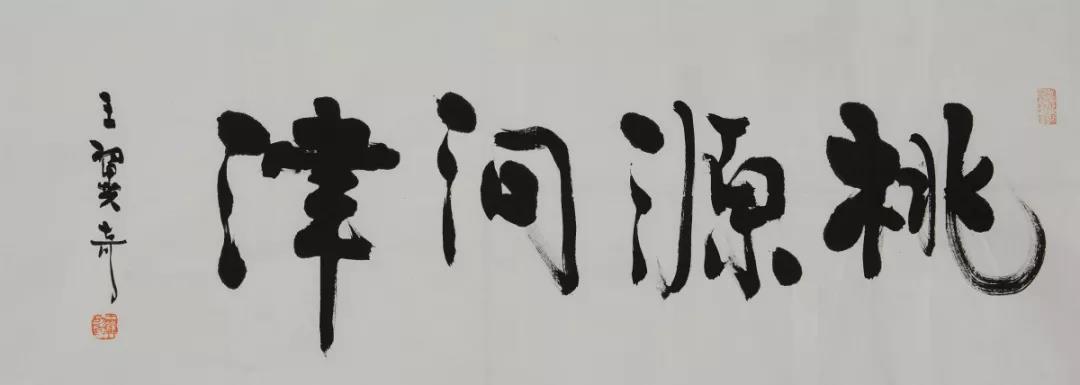 桃源问津
王翼奇